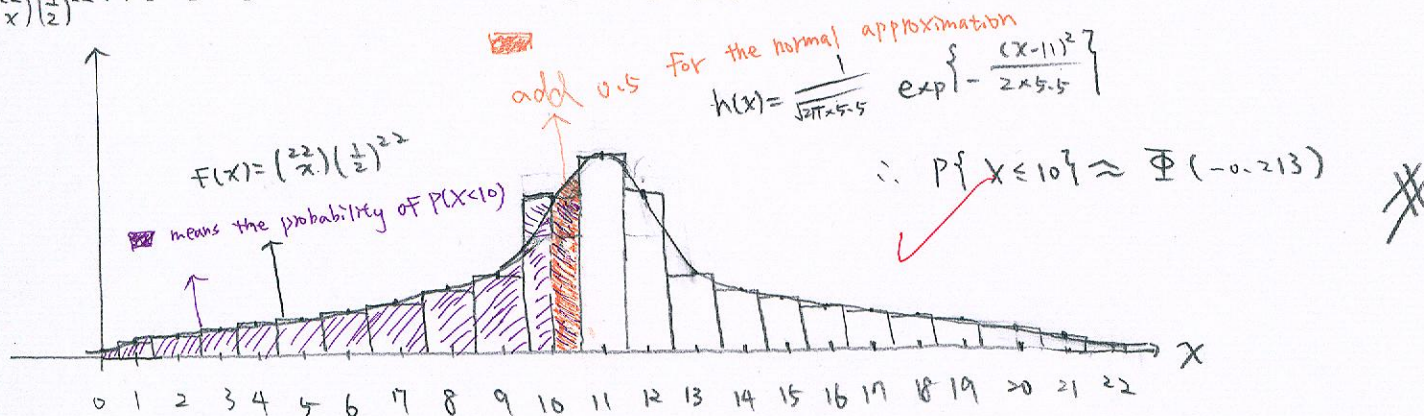 x)(1/2)²²
add 0.5 for the normal approximation
h(x) = 1/√(2π×5.5) exp{- (x-11)²/(2×5.5)}
F(x) = (22 x)(1/2)²²
means the probability of P(X<10)
∴ P{X≤10} ≈ Φ(-0.213)
X
0 1 2 3 4 5 6 7 8 9 10 11 12 13 14 15 16 17 18 19 20 21 22